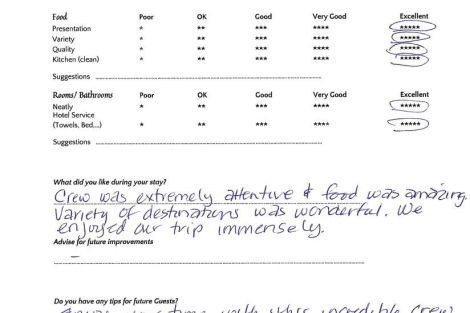 Food Poor OK Good Very Good Excellent
Presentation * ** *** **** *****
Variety * ** *** **** *****
Quality * ** *** **** *****
Kitchen (clean) * ** *** **** *****
Suggestions
Rooms/ Bathrooms Poor OK Good Very Good Excellent
Neatly * ** *** **** *****
Hotel Service
(Towels, Bed,..) * ** *** **** *****
Suggestions
What did you like during your stay?
Crew was extremely attentive & food was amazing.
Variety of destinations was wonderful. We
enjoyed our trip immensely.
Advise for future improvements
–
Do you have any tips for future Guests?
time with this incredible crew